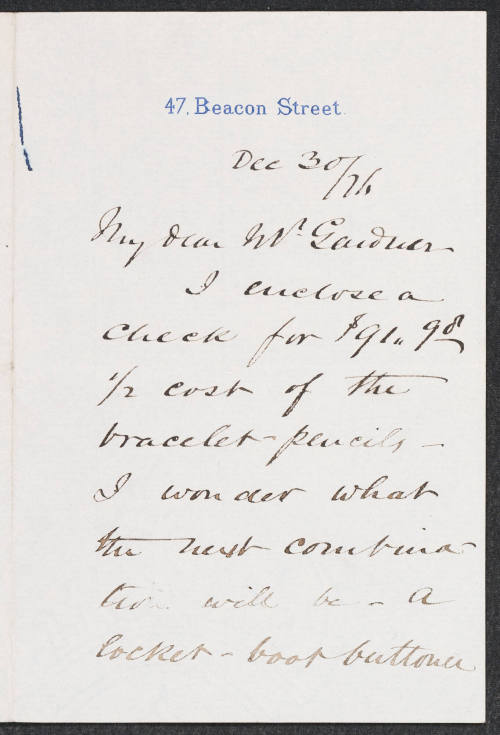 47, Beacon Street.
Dec 30/76
My dear Mr Gardner
I enclose a
check for $91.98
1/2 cost of the
bracelet-pencils –
I wonder what
the next combina
tion will be – a
locket-boot buttoner